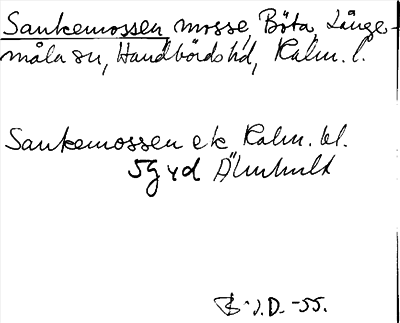 Sankemossen, mosse, Böta, Långe-
måla sn, Handbörds hd, Kalm. l.
Sankemossen ek Kalm. bl.
5G vd Älmhult
J.D. -55.